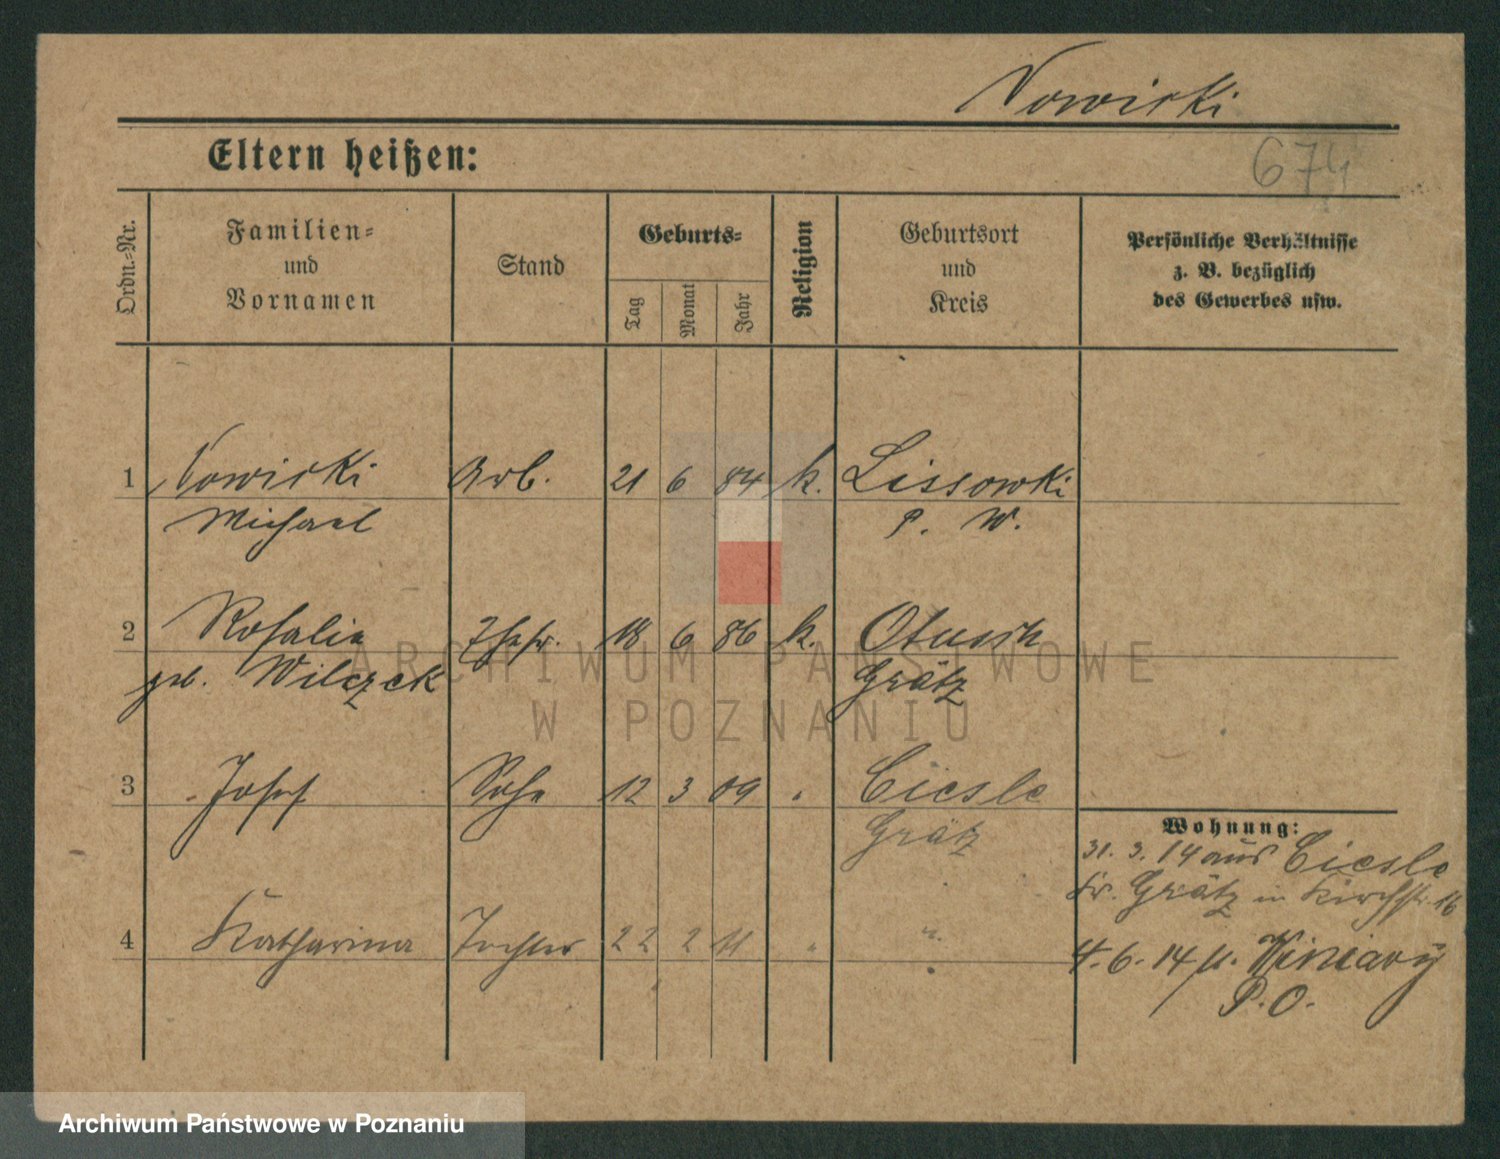 Nowicki
674
Eltern heißen:
Ordn.-Nr.
Familien-
und
Vornamen
Stand
Geburts-
Tag
Monat
Jahr
Religion
Geburtsort
und
Kreis
Persönliche Verhältnisse
z. B. bezüglich
des Gewerbes usw.
1 Nowicki Arb. 21 6 84 k. Lissowki
Michael P. W.
2 Rosalie Ehefr. 18 6 86 k. Otusch
geb. Wilczek Grätz
3 Josef Sohn 12 3 09 " Ciesle
Grätz
Wohnung:
31. 3. 14 aus Ciesle
Kr. Grätz in Kirchstr. 16
4 Katharina Tochter 22 2 11 " "
4. 6. 14 n. Winiary
P. O.
ARCHIWUM PAŃSTWOWE
W POZNANIU
Archiwum Państwowe w Poznaniu